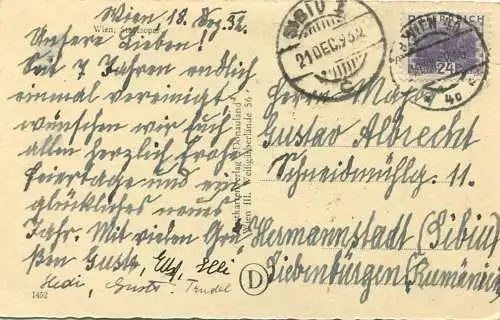 Wien, 18. Dez. 32.
Wien, Staatsoper
Unsere Lieben!
Seit 7 Jahren endlich
einmal vereinigt
wünschen wir Euch
allen herzlich frohe
Feiertage und ein
glückliches neues
Jahr. Mit vielen Grü-
ßen Gusto, Elli
Hedi, Gusti, Trudel
1452
Postkartenverlag "Donauland"
Wien III. Weißgärberlände 56
D
SIBIU 1
21 DEC. 932
ÖSTERREICH
24
WIEN
Herrn Major
Gustav Albrecht
Schneidmühlg. 11.
Hermannstadt (Sibiu)
Siebenbürgen (Rumänien)